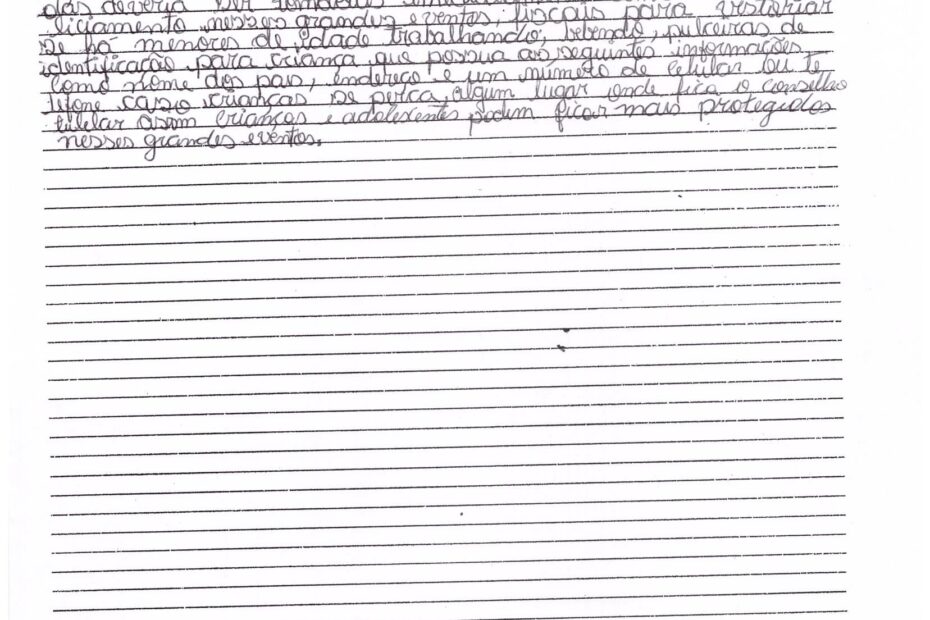 das deveria ser tomadas
liciamento nesses grandes eventos, fiscais para vistoriar
se há menores de idade trabalhando, bebendo, pulceiras de
identificação para criança que possua as seguintes informações
como nome dos pais, endereço e um número de celular ou te
lefone caso crianças se perca, algum lugar onde fica o conselho
tutelar asim crianças e adolescentes podem ficar mais protegidos
nesses grandes eventos.